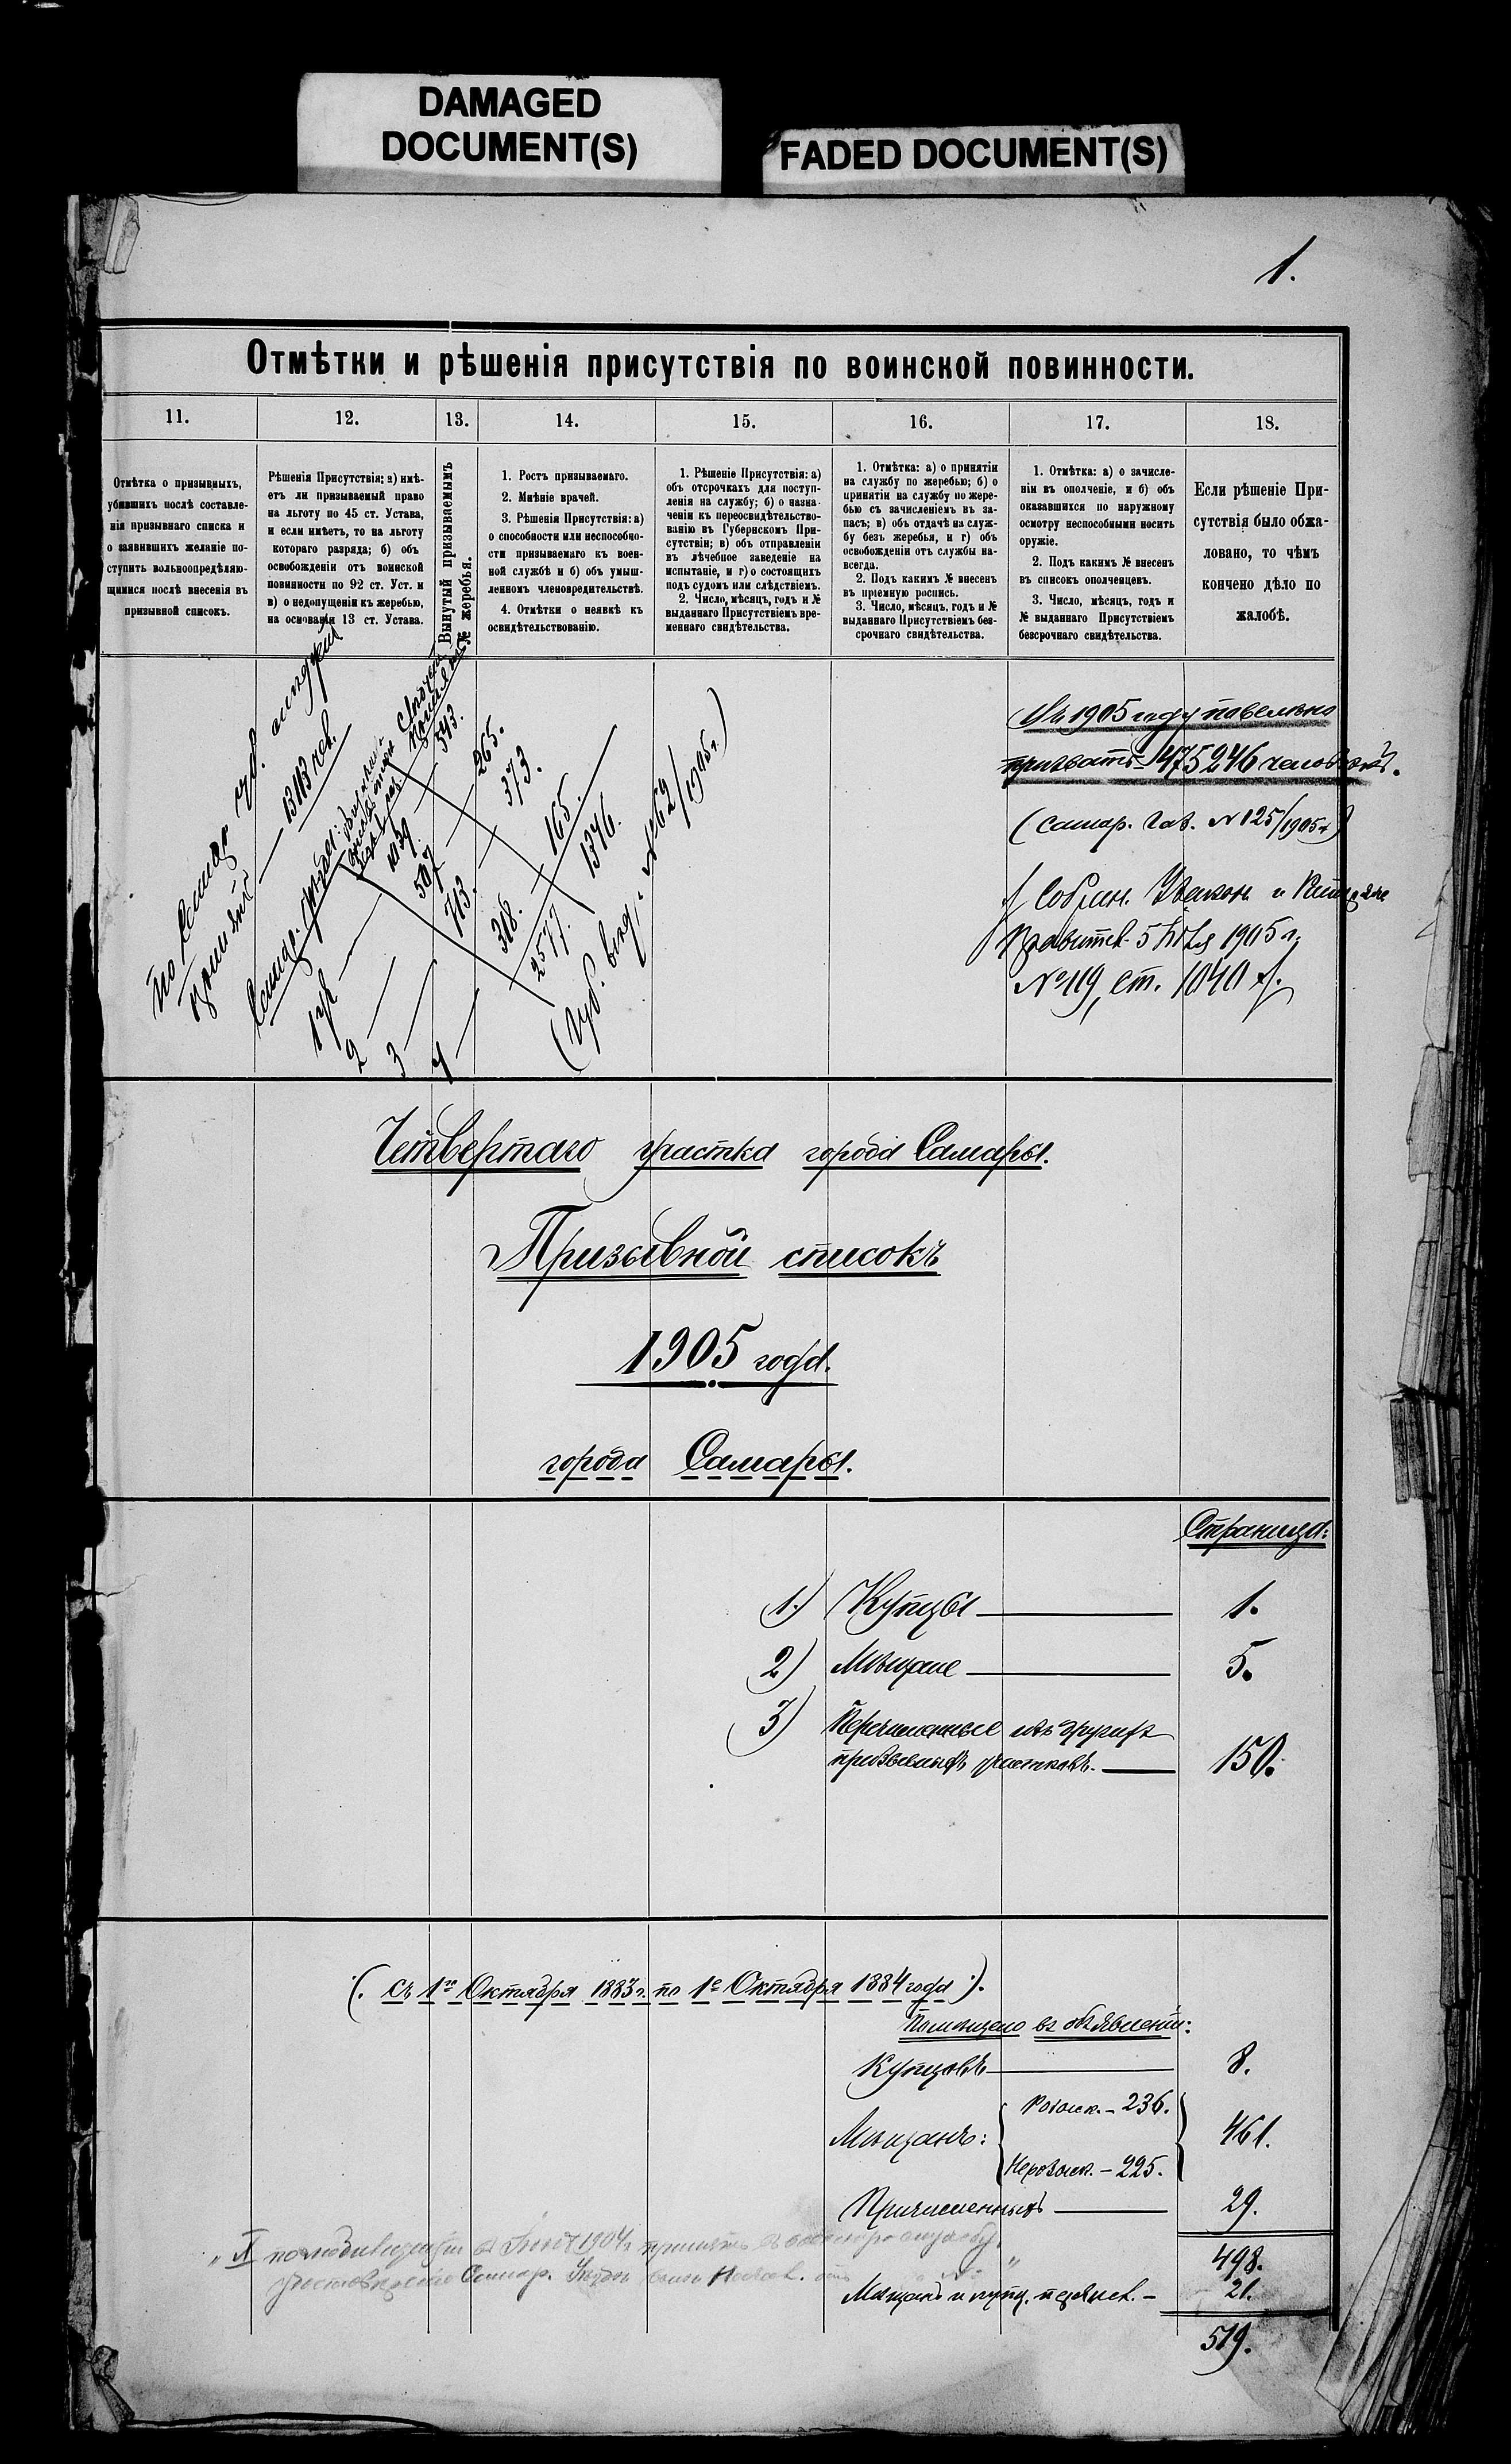 DAMAGED
DOCUMENT(S)
FADED DOCUMENT(S)
1.
Отмѣтки и рѣшенія присутствія по воинской повинности.
11.
12.
13.
14.
15.
16.
17.
18.
Отмѣтка о призывныхъ,
убившихъ послѣ составле-
нія призывнаго списка и
о заявившихъ желаніе по-
ступить вольноопредѣляю-
щимися послѣ внесенія въ
призывной списокъ.
Рѣшенія Присутствія; а) имѣ-
етъ ли призываемый право
на льготу по 45 ст. Устава,
и если имѣетъ, то на льготу
котораго разряда; б) объ
освобожденіи отъ воинской
повинности по 92 ст. Уст. и
в) о недопущеніи къ жеребью,
на основаніи 13 ст. Устава.
Вынутый призываемымъ
№ жеребья.
1. Ростъ призываемаго.
2. Мнѣніе врачей.
3. Рѣшенія Присутствія: а)
о способности или неспособно-
сти призываемаго къ воен-
ной службѣ и б) объ умыш-
ленномъ членовредительствѣ.
4. Отмѣтки о неявкѣ къ
освидѣтельствованію.
1. Рѣшеніе Присутствія: а)
объ отсрочкахъ для поступ-
ленія на службу; б) о назна-
ченіи къ переосвидѣтельство-
ванію въ Губернскомъ При-
сутствіи; в) объ отправленіи
въ лѣчебное заведеніе на
испытаніе, и г) о состоящихъ
подъ судомъ или слѣдствіемъ.
2. Число, мѣсяцъ, годъ и №
выданнаго Присутствіемъ вре-
меннаго свидѣтельства.
1. Отмѣтка: а) о принятіи
на службу по жеребью; б) о
принятіи на службу по жере-
бью съ зачисленіемъ въ за-
пасъ; в) объ отдачѣ на служ-
бу безъ жеребья, и г) объ
освобожденіи отъ службы на-
всегда.
2. Подъ какимъ № внесенъ
въ пріемную роспись.
3. Число, мѣсяцъ, годъ и №
выданнаго Присутствіемъ без-
срочнаго свидѣтельства.
1. Отмѣтка: а) о зачисле-
ніи въ ополченіе, и б) объ
оказавшихся по наружному
осмотру неспособными носить
оружіе.
2. Подъ какимъ № внесенъ
въ списокъ ополченцевъ.
3. Число, мѣсяцъ, годъ и
№ выданнаго Присутствіемъ
безсрочнаго свидѣтельства.
Если рѣшеніе При-
сутствія было обжа-
ловано, то чѣмъ
кончено дѣло по
жалобѣ.
По Самар. губ.
13113 чел.
1 уч. — 1039. — 543.
2 — 507 — 265.
3 — 713. — 373.
4 — 318. — 165.
2577. 1346.
(Губ. вѣд. № 62/1905 г.)
Въ 1905 году повелѣно
призвать 475246 человѣкъ.
(Самар. Газ. № 125/1905 г.)
Собран. Узакон. и
Правител. 5 1905 г.
№ 119, ст. 1040
Четвертаго участка города Самары.
Призывной списокъ
1905 года.
города Самары.
Страница:
1.) Купцы — 1.
2) Мѣщане — 5.
3) Перечисленные изъ другихъ
призывныхъ участковъ. — 150.
(. съ 1го Октября 1883 г. по 1е Октября 1884 года ).
Помѣщено въ объявленіи:
Купцовъ — 8.
Мѣщанъ: 461.
— 236.
— 225.
Причисленныхъ — 29.
498.
Мѣщанъ и купц. — 21.
519.